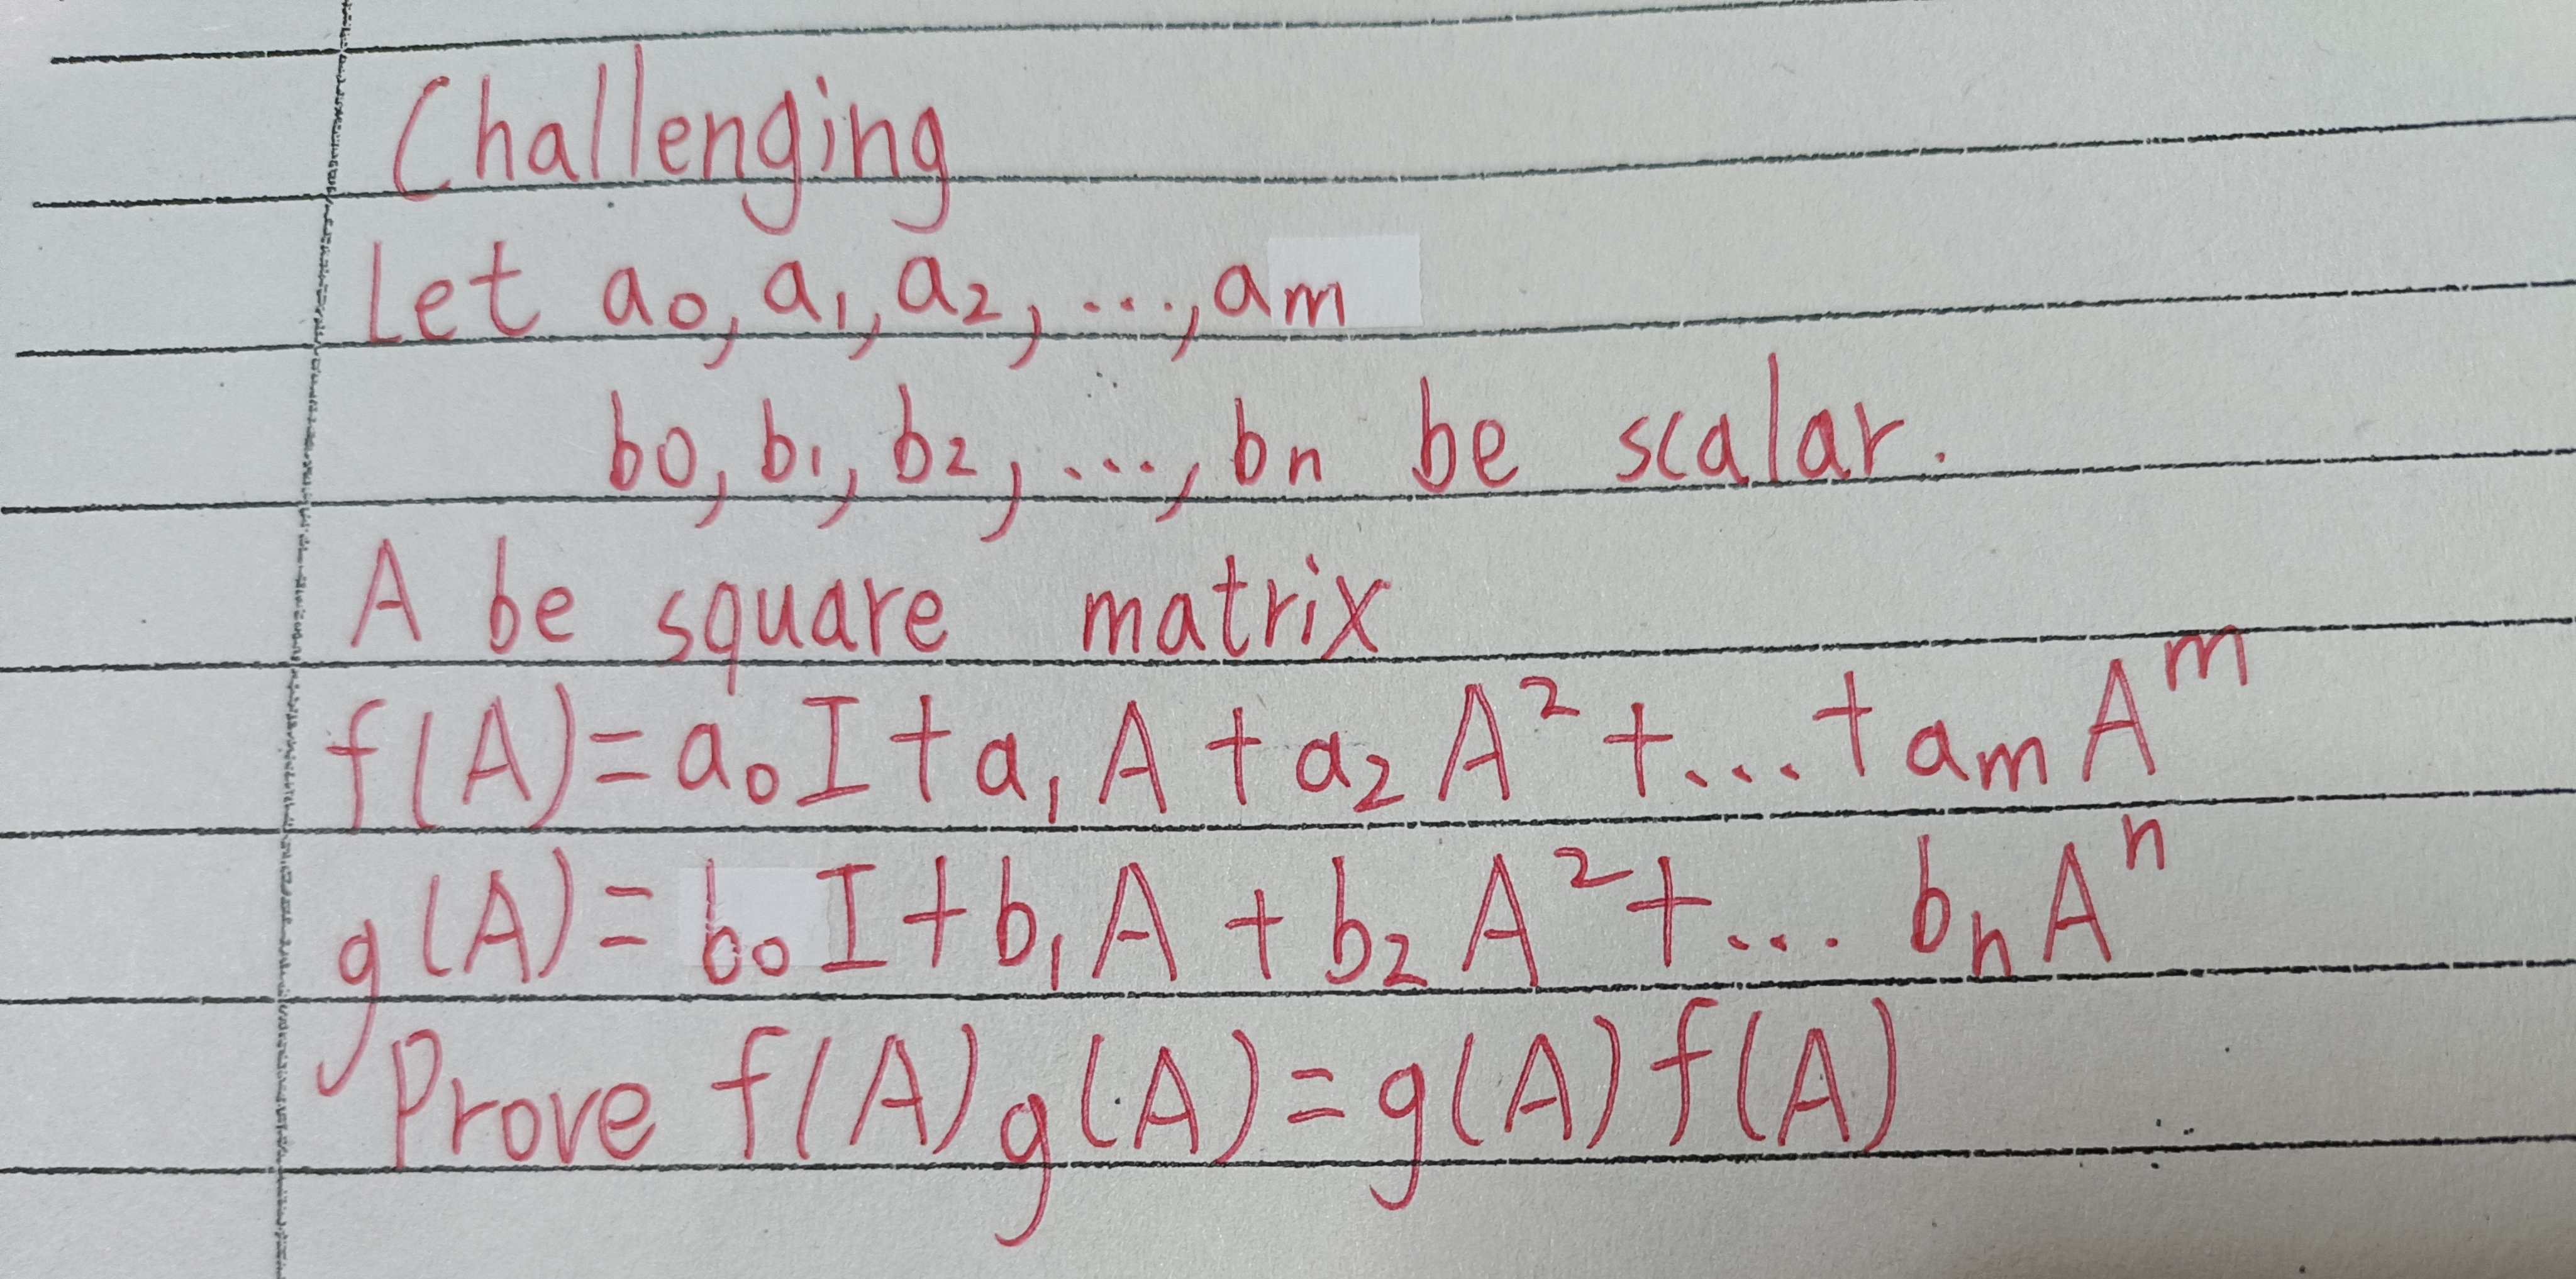 Challenging
Let a₀, a₁, a₂, ..., aₘ
b₀, b₁, b₂, ..., bₙ be scalar.
A be square matrix
f(A)=a₀I+a₁A+a₂A²+...+aₘAᵐ
g(A)=b₀I+b₁A+b₂A²+... bₙAⁿ
Prove f(A)g(A)=g(A)f(A)